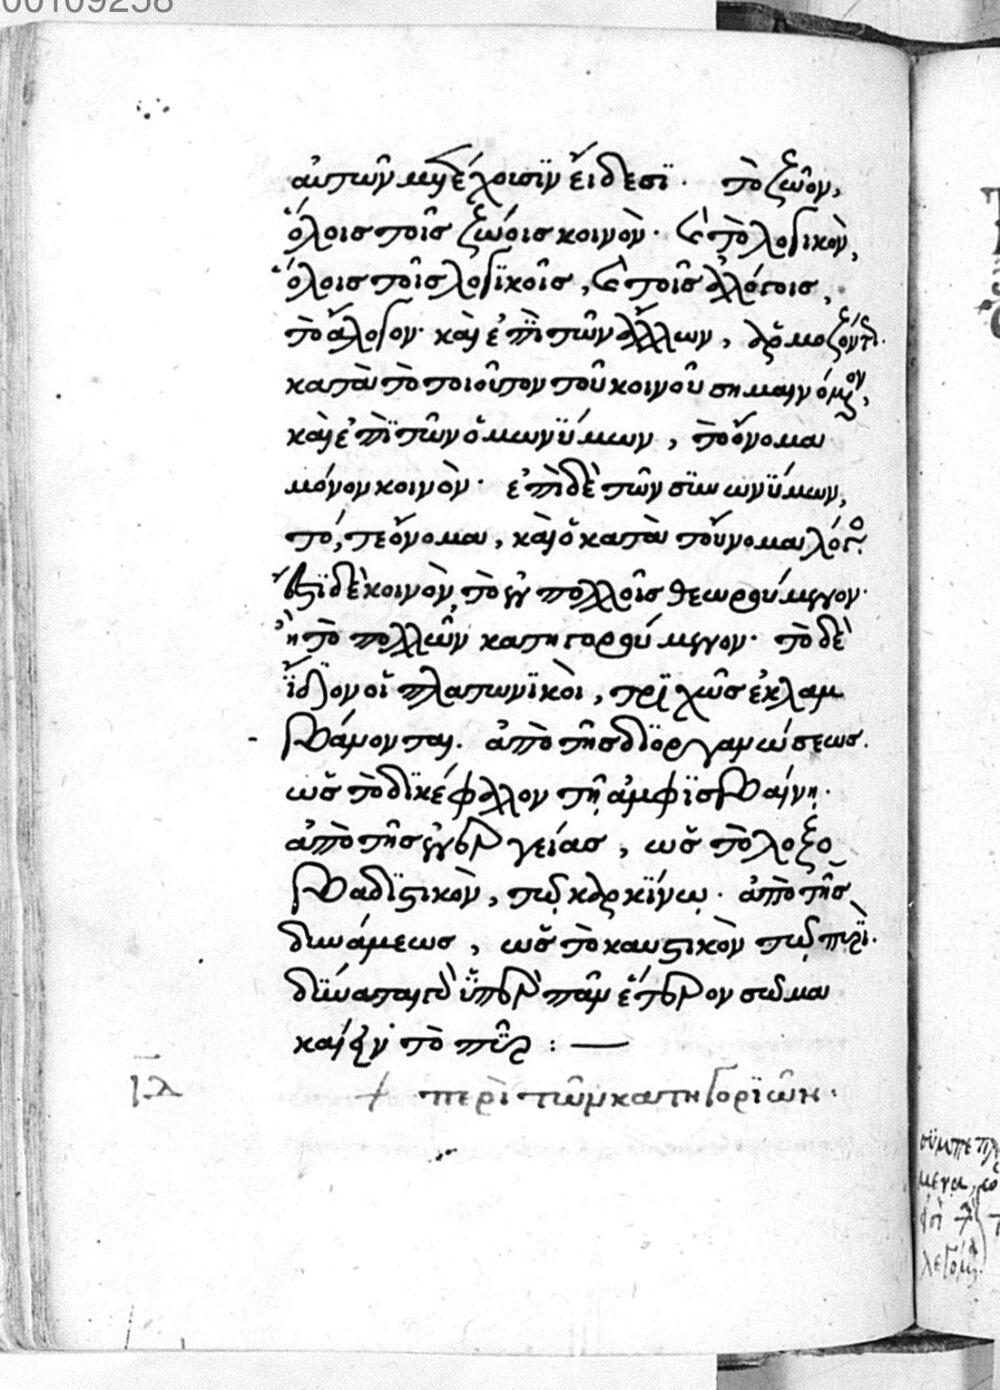 00109258
αὐτῶν μετέχουσϊν εἴδεσϊ· τὸ ζῶον,
ὅλοις τοῖς ζώοις κοινὸν· καὶ τὸ λογικὸν,
ὅλοις τοῖς λογϊκοῖς, καὶ τοῖς ἀλόγοις,
τὸ ἄλογον· καὶ ἐπῒ τῶν ἄλλων, ἁρμοζόντως.
κατὰ τὸ τοιοῦτον τοῦ κοινοῦ σημαινόμενον,
καὶ ἐπῒ τῶν ὁμωνϋμων, τὸ ὄνομα
μόνον κοινὸν· ἐπὶ δὲ τῶν σϋνωνϋμων,
τό, τε ὄνομα, καὶ ὁ κατὰ τοὔνομα λόγος·
ἔστϊ δὲ κοινὸν, τὸ ἐν πολλοῖς θεωρούμενον·
ἢ τὸ πολλῶν κατηγορούμενον· τὸ δὲ
ἴδϊον οἱ πλατωνϊκοὶ, τρϊχῶς ἐκλαμ
βάνονται. ἀπὸ τῆς δϊοργανώσεως.
ὡς τὸ δϊκέφαλον τῇ ἀμφϊσβαίνῃ.
ἀπὸ τῆς ἐνεργείας, ὡς τὸ λοξο
βαδϊστικὸν, τῷ καρκϊνω. ἀπὸ τῆς
δυνάμεως, ὡς τὸ καυστικὸν τῷ πυρϊ.
δϋναται γὰρ ὑπὲρ πᾶν ἕτερον σῶμα
καίειν τὸ πῦρ : —
ια + περὶ τῶν κατηγορϊῶν.